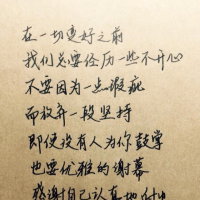 在一切变好之前
我们总要经历一些不开心
不要因为一点瑕疵
而放弃一段坚持
即使没有人为你鼓掌
也要优雅的谢幕
感谢自己认真地付出